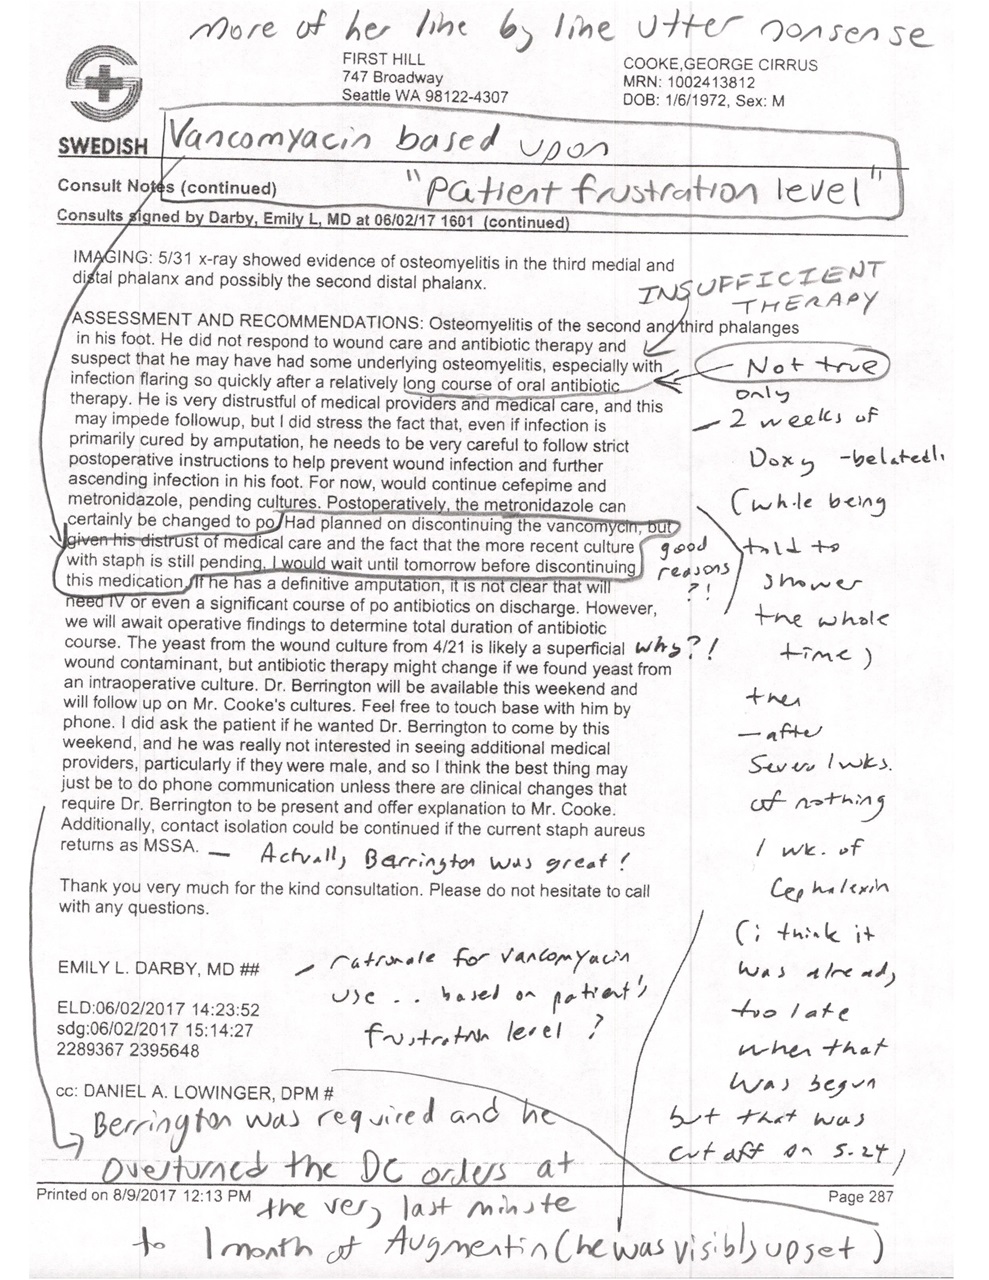 More of her line by line utter nonsense
FIRST HILL
747 Broadway
Seattle WA 98122-4307
COOKE,GEORGE CIRRUS
MRN: 1002413812
DOB: 1/6/1972, Sex: M
SWEDISH
Vancomyacin based upon
"patient frustration level"
Consult Notes (continued)
Consults signed by Darby, Emily L, MD at 06/02/17 1601 (continued)
IMAGING: 5/31 x-ray showed evidence of osteomyelitis in the third medial and
distal phalanx and possibly the second distal phalanx.
INSUFFICIENT
THERAPY
ASSESSMENT AND RECOMMENDATIONS: Osteomyelitis of the second and third phalanges
in his foot. He did not respond to wound care and antibiotic therapy and
suspect that he may have had some underlying osteomyelitis, especially with
infection flaring so quickly after a relatively long course of oral antibiotic
therapy. He is very distrustful of medical providers and medical care, and this
may impede followup, but I did stress the fact that, even if infection is
primarily cured by amputation, he needs to be very careful to follow strict
postoperative instructions to help prevent wound infection and further
ascending infection in his foot. For now, would continue cefepime and
metronidazole, pending cultures. Postoperatively, the metronidazole can
certainly be changed to po. Had planned on discontinuing the vancomycin, but
given his distrust of medical care and the fact that the more recent culture
with staph is still pending, I would wait until tomorrow before discontinuing
this medication. If he has a definitive amputation, it is not clear that will
need IV or even a significant course of po antibiotics on discharge. However,
we will await operative findings to determine total duration of antibiotic
course. The yeast from the wound culture from 4/21 is likely a superficial
wound contaminant, but antibiotic therapy might change if we found yeast from
an intraoperative culture. Dr. Berrington will be available this weekend and
will follow up on Mr. Cooke's cultures. Feel free to touch base with him by
phone. I did ask the patient if he wanted Dr. Berrington to come by this
weekend, and he was really not interested in seeing additional medical
providers, particularly if they were male, and so I think the best thing may
just be to do phone communication unless there are clinical changes that
require Dr. Berrington to be present and offer explanation to Mr. Cooke.
Additionally, contact isolation could be continued if the current staph aureus
returns as MSSA.
good
reasons
?!
why?!
Not true
only
- 2 weeks of
Doxy - belatedly
(while being
told to
shower
the whole
time)
then
- after
several wks.
of nothing
1 wk. of
Cephalexin
(i think it
was already
too late
when that
was begun
but that was
cut off on 5-24)
- Actually Berrington was great!
Thank you very much for the kind consultation. Please do not hesitate to call
with any questions.
EMILY L. DARBY, MD ##
- rationale for Vancomyacin
use .. based on patient's
frustration level ?
ELD:06/02/2017 14:23:52
sdg:06/02/2017 15:14:27
2289367 2395648
cc: DANIEL A. LOWINGER, DPM #
Berrington was required and he
overturned the DC orders at
the very last minute
to 1 month of Augmentin (he was visibly upset)
Printed on 8/9/2017 12:13 PM
Page 287